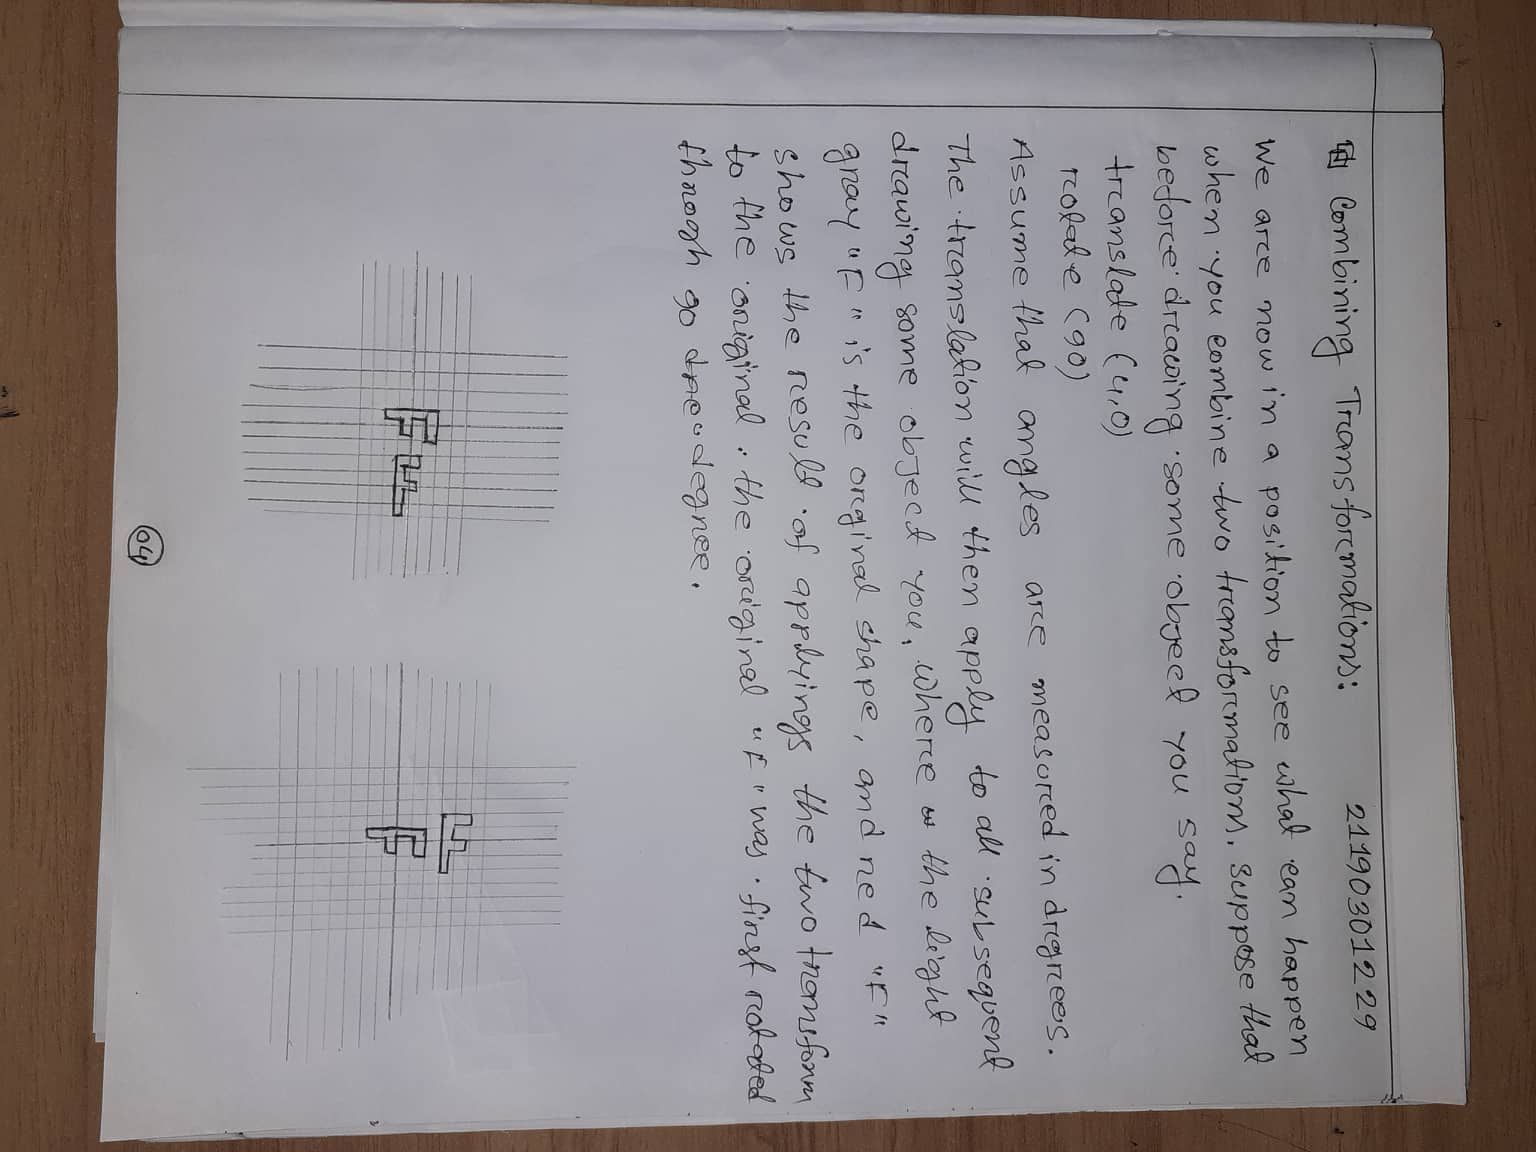 Combining Transforemations:
21190301229
We arce now in a position to see what can happen
when you combine two transformations. suppose that
beforce drawing some object you say.
translate (4,0)
rotate (90)
Assume that angles are measured in drgrees.
The translation will then apply to all subsequent
drawing some object you, where the light
gray "F" is the original shape, and red "F"
shows the result of applyings the two transform
to the original. the original "F" was first rotated
through 90 degree.
04